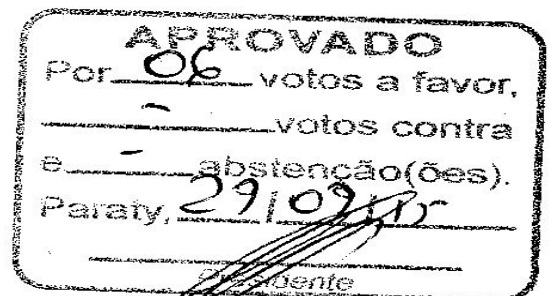 APROVADO
Por 06 votos a favor,
- votos contra
e - abstenção(ões).
Paraty, 29/09/15
Presidente